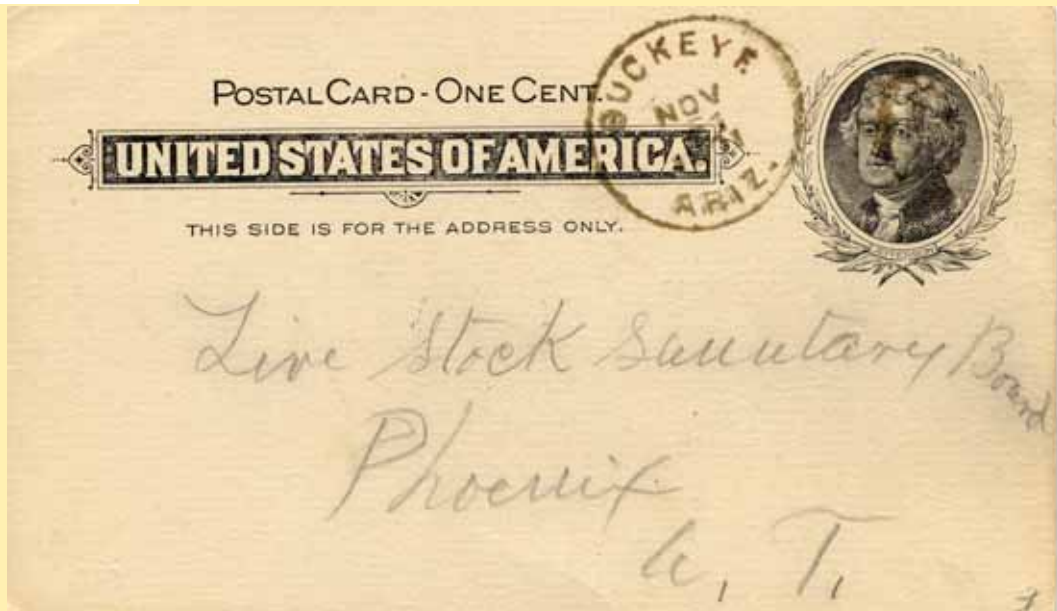 POSTAL CARD - ONE CENT.
UNITED STATES OF AMERICA.
THIS SIDE IS FOR THE ADDRESS ONLY.
BUCKEYE.
NOV
ARIZ.
JEFFERSON
Live Stock Sanutary Board
Phoenix
A, T,